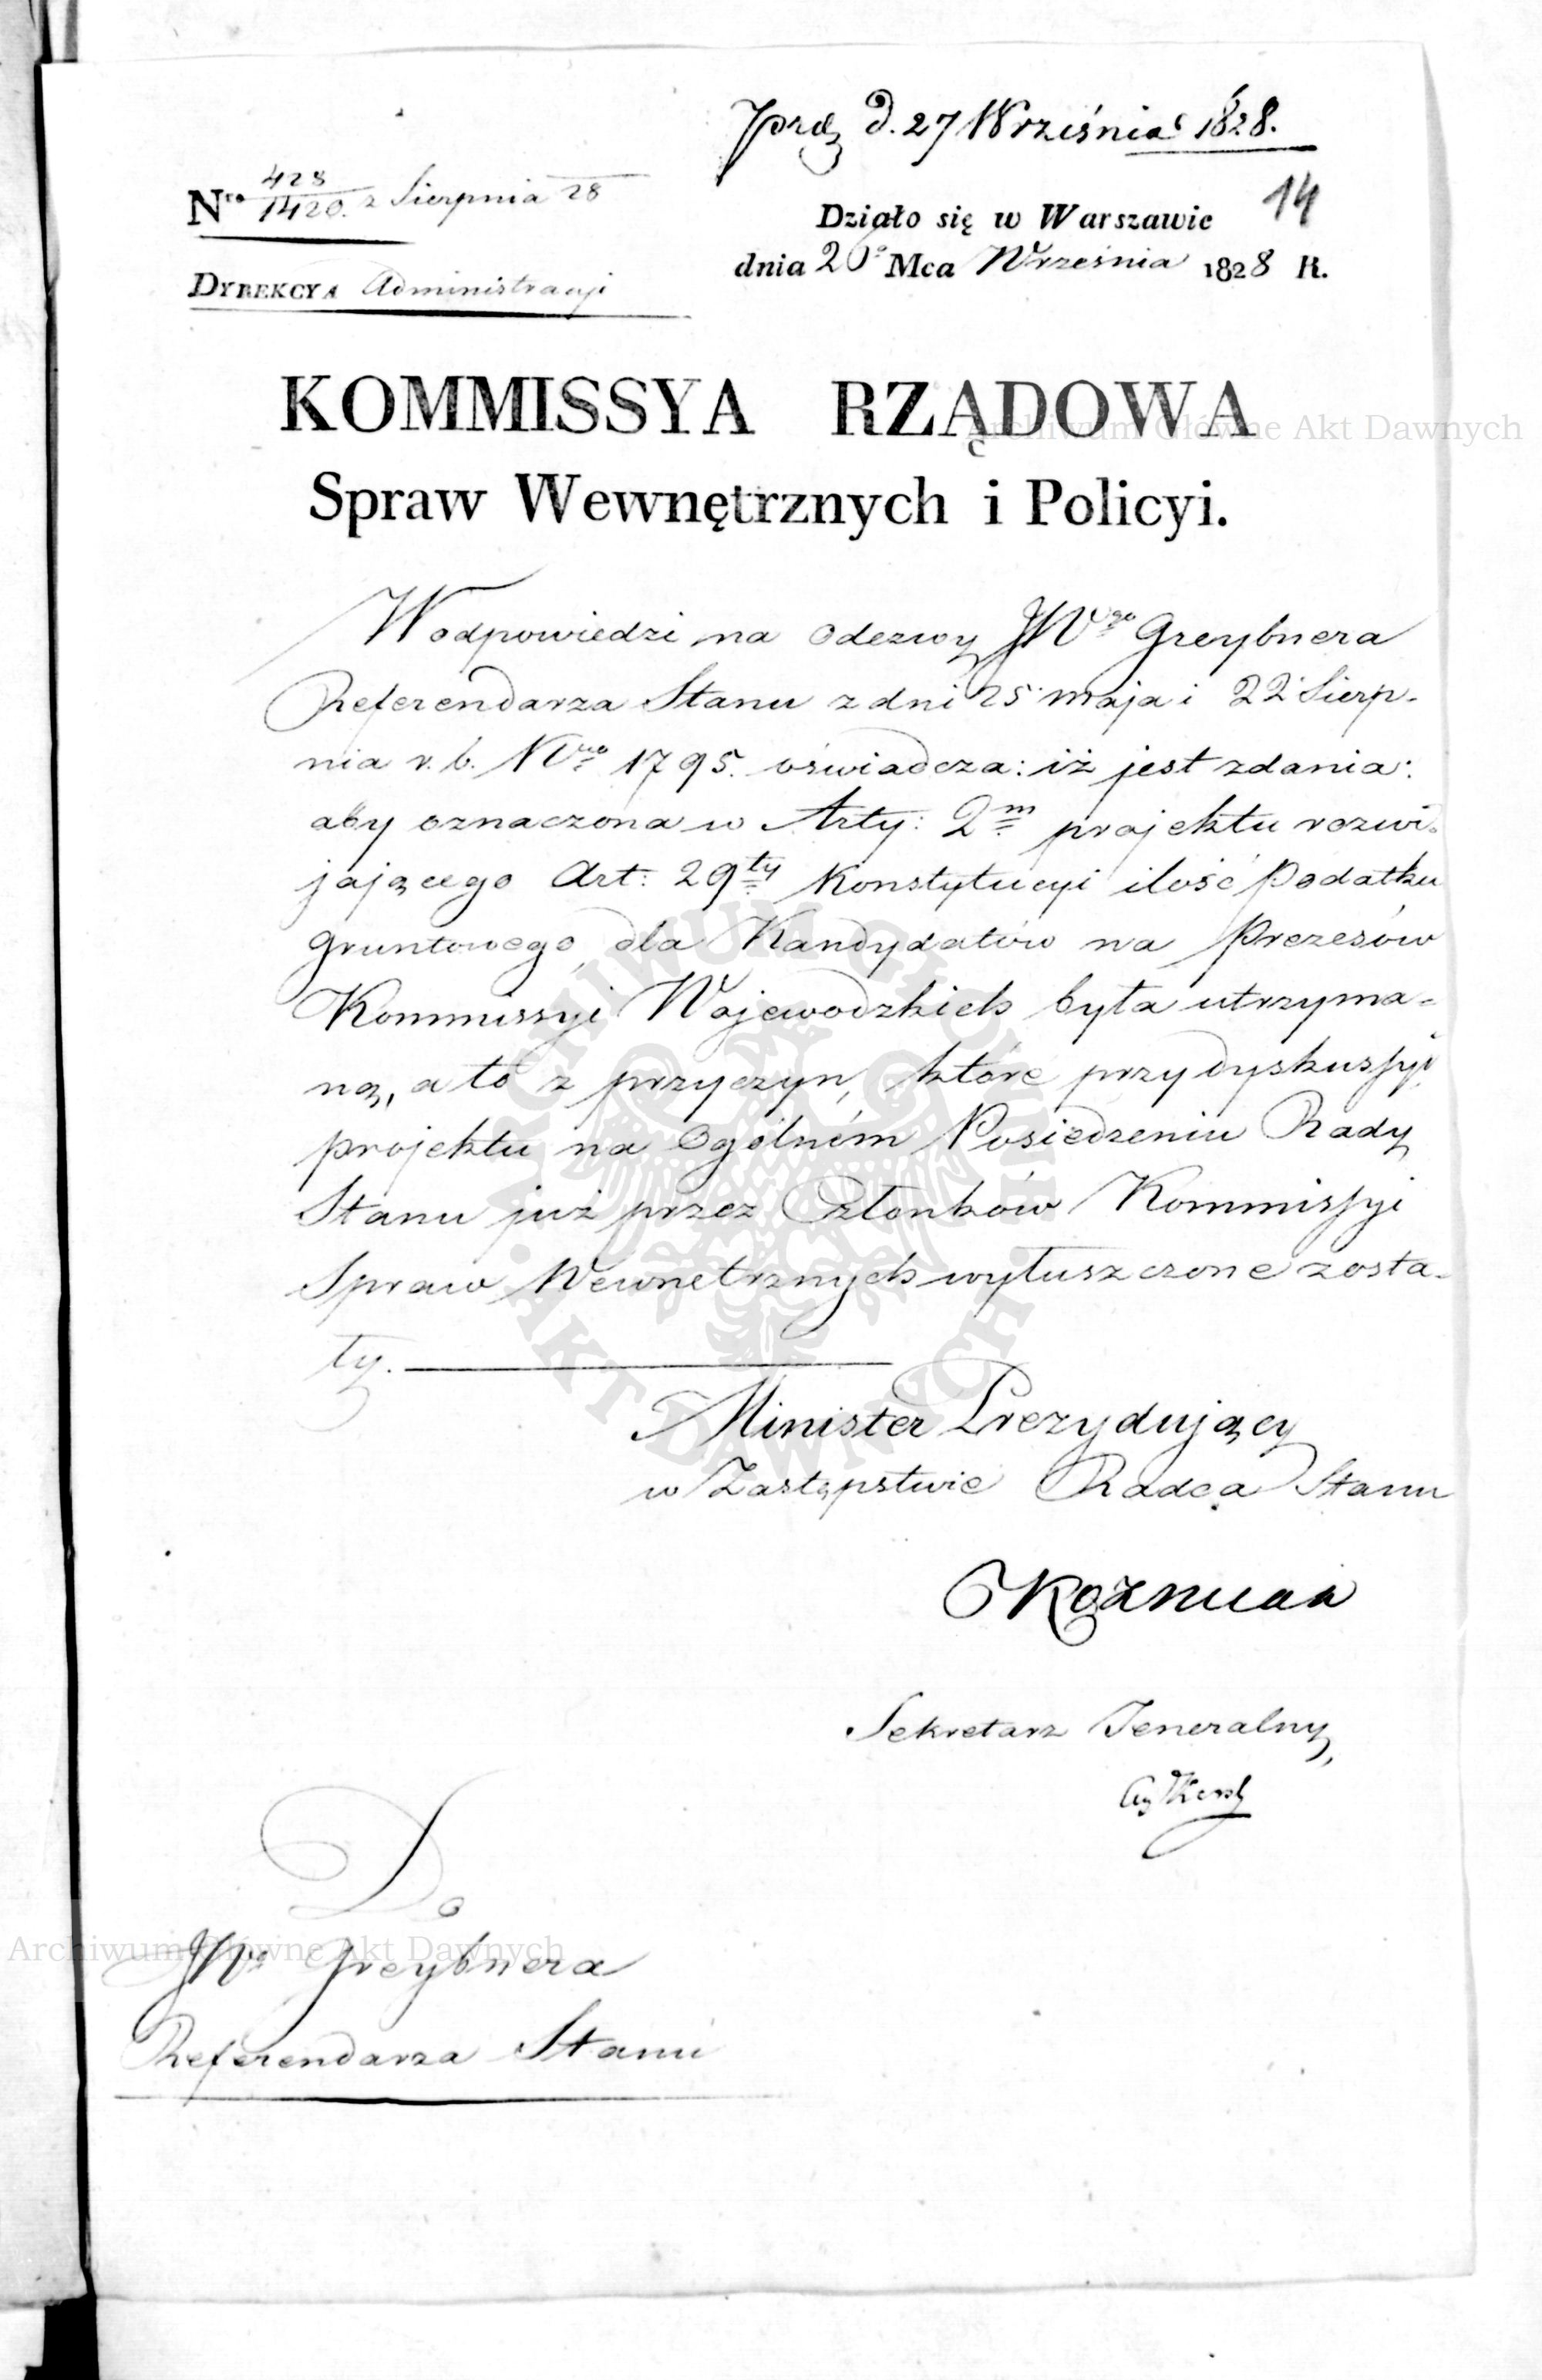 Prez d. 27 Wrzieśnia 1828.
Nro 428/1420. z Sierpnia 28
14
Działo się w Warszawie
dnia 20° Mca Września 1828 R.
DYREKCYA Administracyi
KOMMISSYA RZĄDOWA
Archiwum Główne Akt Dawnych
Spraw Wewnętrznych i Policyi.
W odpowiedzi na Odezwy JWgo Greybnera
Referendarza Stanu z dni 25 maja i 22 Sierp-
nia r. b. Nro 1795. oświadcza: iż jest zdania:
aby oznaczona w Arty: 2m projektu rozwi-
jającego Art: 29ty Konstytucyi ilość Podatku
gruntowego dla Kandydatów na Prezesów
Kommissyi Wojewodzkich była utrzyma-
ną, a to z przyczyn, które przy dyskussyi
projektu na Ogólném Posiedzeniu Rady
Stanu już przez Członków Kommissyi
Spraw Wewnetrznych wyłuszczone zosta-
ły.
ARCHIWUM GŁÓWNE
AKT DAWNYCH
Minister Prezydujący
w Zastępstwie Radca Stanu
Koźmian
Sekretarz Jeneralny,
Do
Archiwum Główne Akt Dawnych
JWo Greybnera
Referendarza Stanu